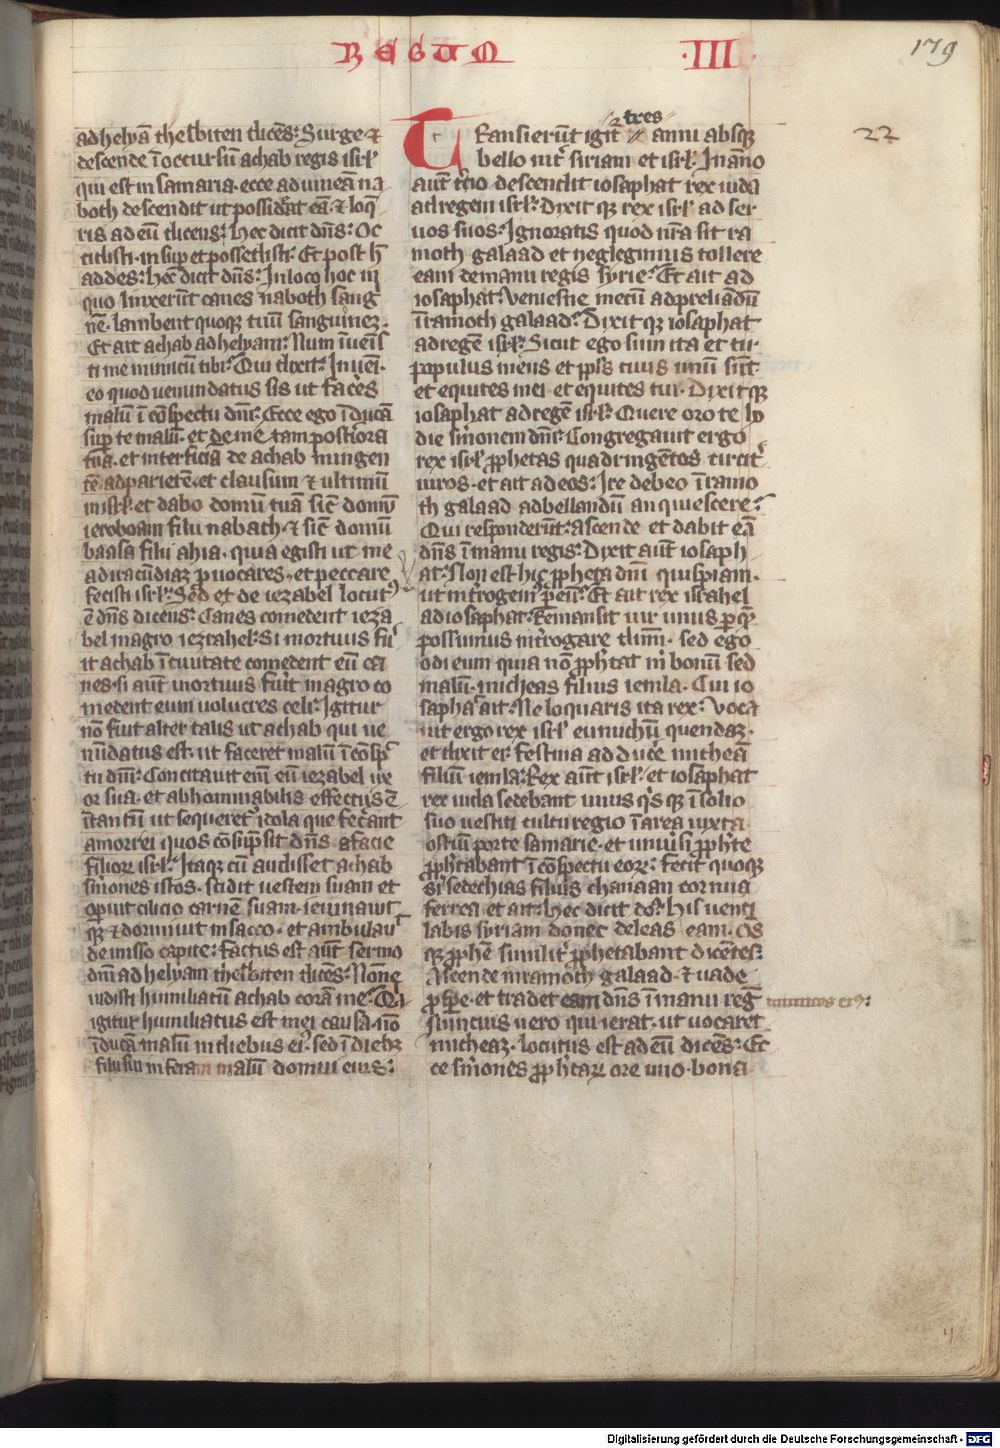 REGUM
·III·
179
ad helyā thesbiten dicēs: Surge ⁊
descende ī occursū achab regis isrl'
qui est in samaria. ecce ad uineā na
both descendit ut possideat eā. ⁊ loq̄
ris ad eū dicens: Hec dicit dn̄s: Oc
cidisti. insup et possedisti: Et post h̄
addes: hec dicit dn̄s: In loco hoc in
quo linxerūt canes naboth sang
nē. lambent quoq; tuū sanguinez.
Et ait achab ad helyam: Num īuēis
ti me inimicū tibi: Qui dixit: Inuēi.
eo quod uenundatus sis ut faces
malū ī cōspectu dni: Ecce ego īducā
sup te malū. et demē tam postiora
tua. et interficiā de achab mingen
tē ad parietē. et clausum ⁊ ultimū
in isrl'. et dabo domū tuā sic domū
ieroboam filii nabath. ⁊ sic domū
baasa filii ahia. quia egisti ut me
ad iracūdiaz puocares. et peccare
fecisti isrl': Sed et de iezabel locut9
ē dn̄s dicens: Canes comedent ieza
bel in agro iezrahel: Si mortuus fu
it achab ī ciuitate comedent eū ca
nes. si aūt mortuus fuit in agro co
medent eum uolucres celi: Igitur
nō fuit alter talis ut achab qui ue
nūdatus est. ut faceret malū ī cōsp
tu dni: Concitauit em̄ eū iezabel ux
or sua. et abhominabilis effectus ē
ītantū ut sequeret' idola que fecāant
amorrei quos cōsūpsit dn̄s a facie
filioꝝ isrl': Itaq; cū audisset achab
smones istos. scidit uestem suam et
opuit cilicio carnē suam. ieiunauit
q; ⁊ dormiuit in sacco. et ambulaut
demisso capite: factus est aūt sermo
dni ad helyam thesbiten dicēs: Nōne
uidisti humiliatū achab corā me: Qi
igitur humiliatus est mei causa. nō
īducā malū in diebus ei9. sed ī dieb;
filii sui inferam malū domui eius:
tres
Transierūt igit' anni absq;
bello int' siriam et isrl': In āno
aūt t'cio descendit iosaphat rex iuda
ad regem isrl': Dixit q; rex isrl' ad ser
uos suos: Ignoratis quod nr̄a sit ra
moth galaad et neglegimus tollere
eam de manu regis syrie: Et ait ad
iosaphat: Veniesne mecū ad preliādū
ī ramoth galaad: Dixit q; iosaphat
ad regē isrl': Sicut ego sum ita et tu.
populus meus et pl's tuus unū sūt
et equites mei et equites tui. Dixit q;
iosaphat ad regē isrl': Quere oro te ho
die smonem dni: Congregauit ergo
rex isrl' pphetas quadringētos circit'
uiros. et ait ad eos: Ire debeo ī ramo
th galaad ad bellandū an quiescere:
Qui responderūt: ascende et dabit eā
dn̄s ī manu regis: Dixit aūt iosaph
at: Non est hic ppheta dni quispiam.
ut int'rogem' p eū: Et ait rex israhel
ad iosaphat: Remansit uir unus p q̄
possumus int'rogare dnm̄. sed ego
odi eum quia nō pph'tat m̄ bonū sed
malū. micheas filius iemla. Cui io
saphat ait: Ne loquaris ita rex: Voca
uit ergo rex isrl' eunuchū quendaz.
et dixit ei: festina adduce micheā
filiū iemla: Rex aūt isrl'. et iosaphat
rex iuda sedebant unus qsq; ī solio
suo uestiti cultu regio ī area iuxta
ostiū porte samarie. et uniūsi pph'te
pph'tabant ī cōspectu eoꝝ: fecit quoq;
s sedechias filius chanaan cornua
ferrea et ait: Hec dicit ds: His uenti
labis syriam donec deleas eam. Os
q; pphē similit' pphetabant dicētes:
Ascende in ramoth galaad. ⁊ uade
pspe. et tradet eam dn̄s ī manu reg
Nuncius uero qui ierat. ut uocaret
micheaz. locutus est ad eū dicēs: Ec
ce smones pph'taꝝ ore uno. bona
22
inimicos ei9:
Digitalisierung gefördert durch die Deutsche Forschungsgemeinschaft - DFG